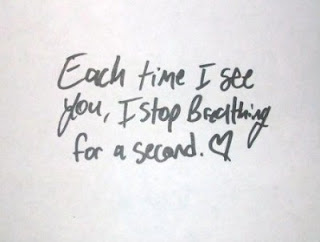 Each time I see
you, I stop Breathing
for a second. ♡